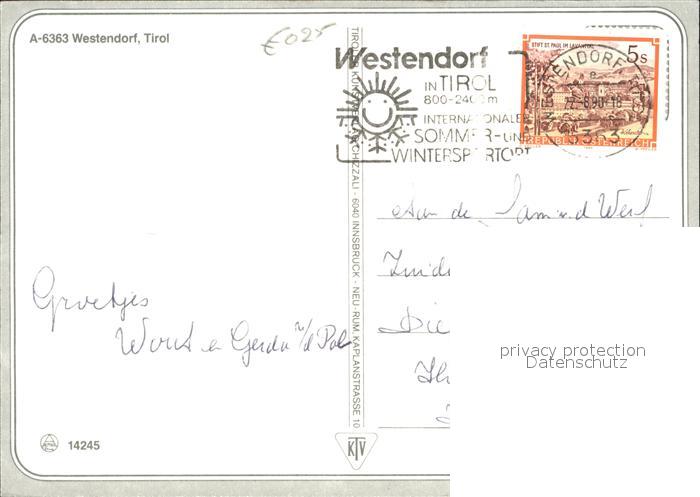 A-6363 Westendorf, Tirol
€ 025
Westendorf
IN TIROL
800-2400m
INTERNATIONALER
SOMMER-UND
WINTERSPORTORT
STIFT ST. PAUL IM LAVANTTAL
5s
REPUBLIK ÖSTERREICH
TIROLER KUNSTVERLAG CHIZZALI - 6040 INNSBRUCK - NEU-RUM, KAPLANSTRASSE 10
Aan de
Zuid
Die
Groetjes
Wout en Gerda v/d Pols
privacy protection
Datenschutz
14245
KTV